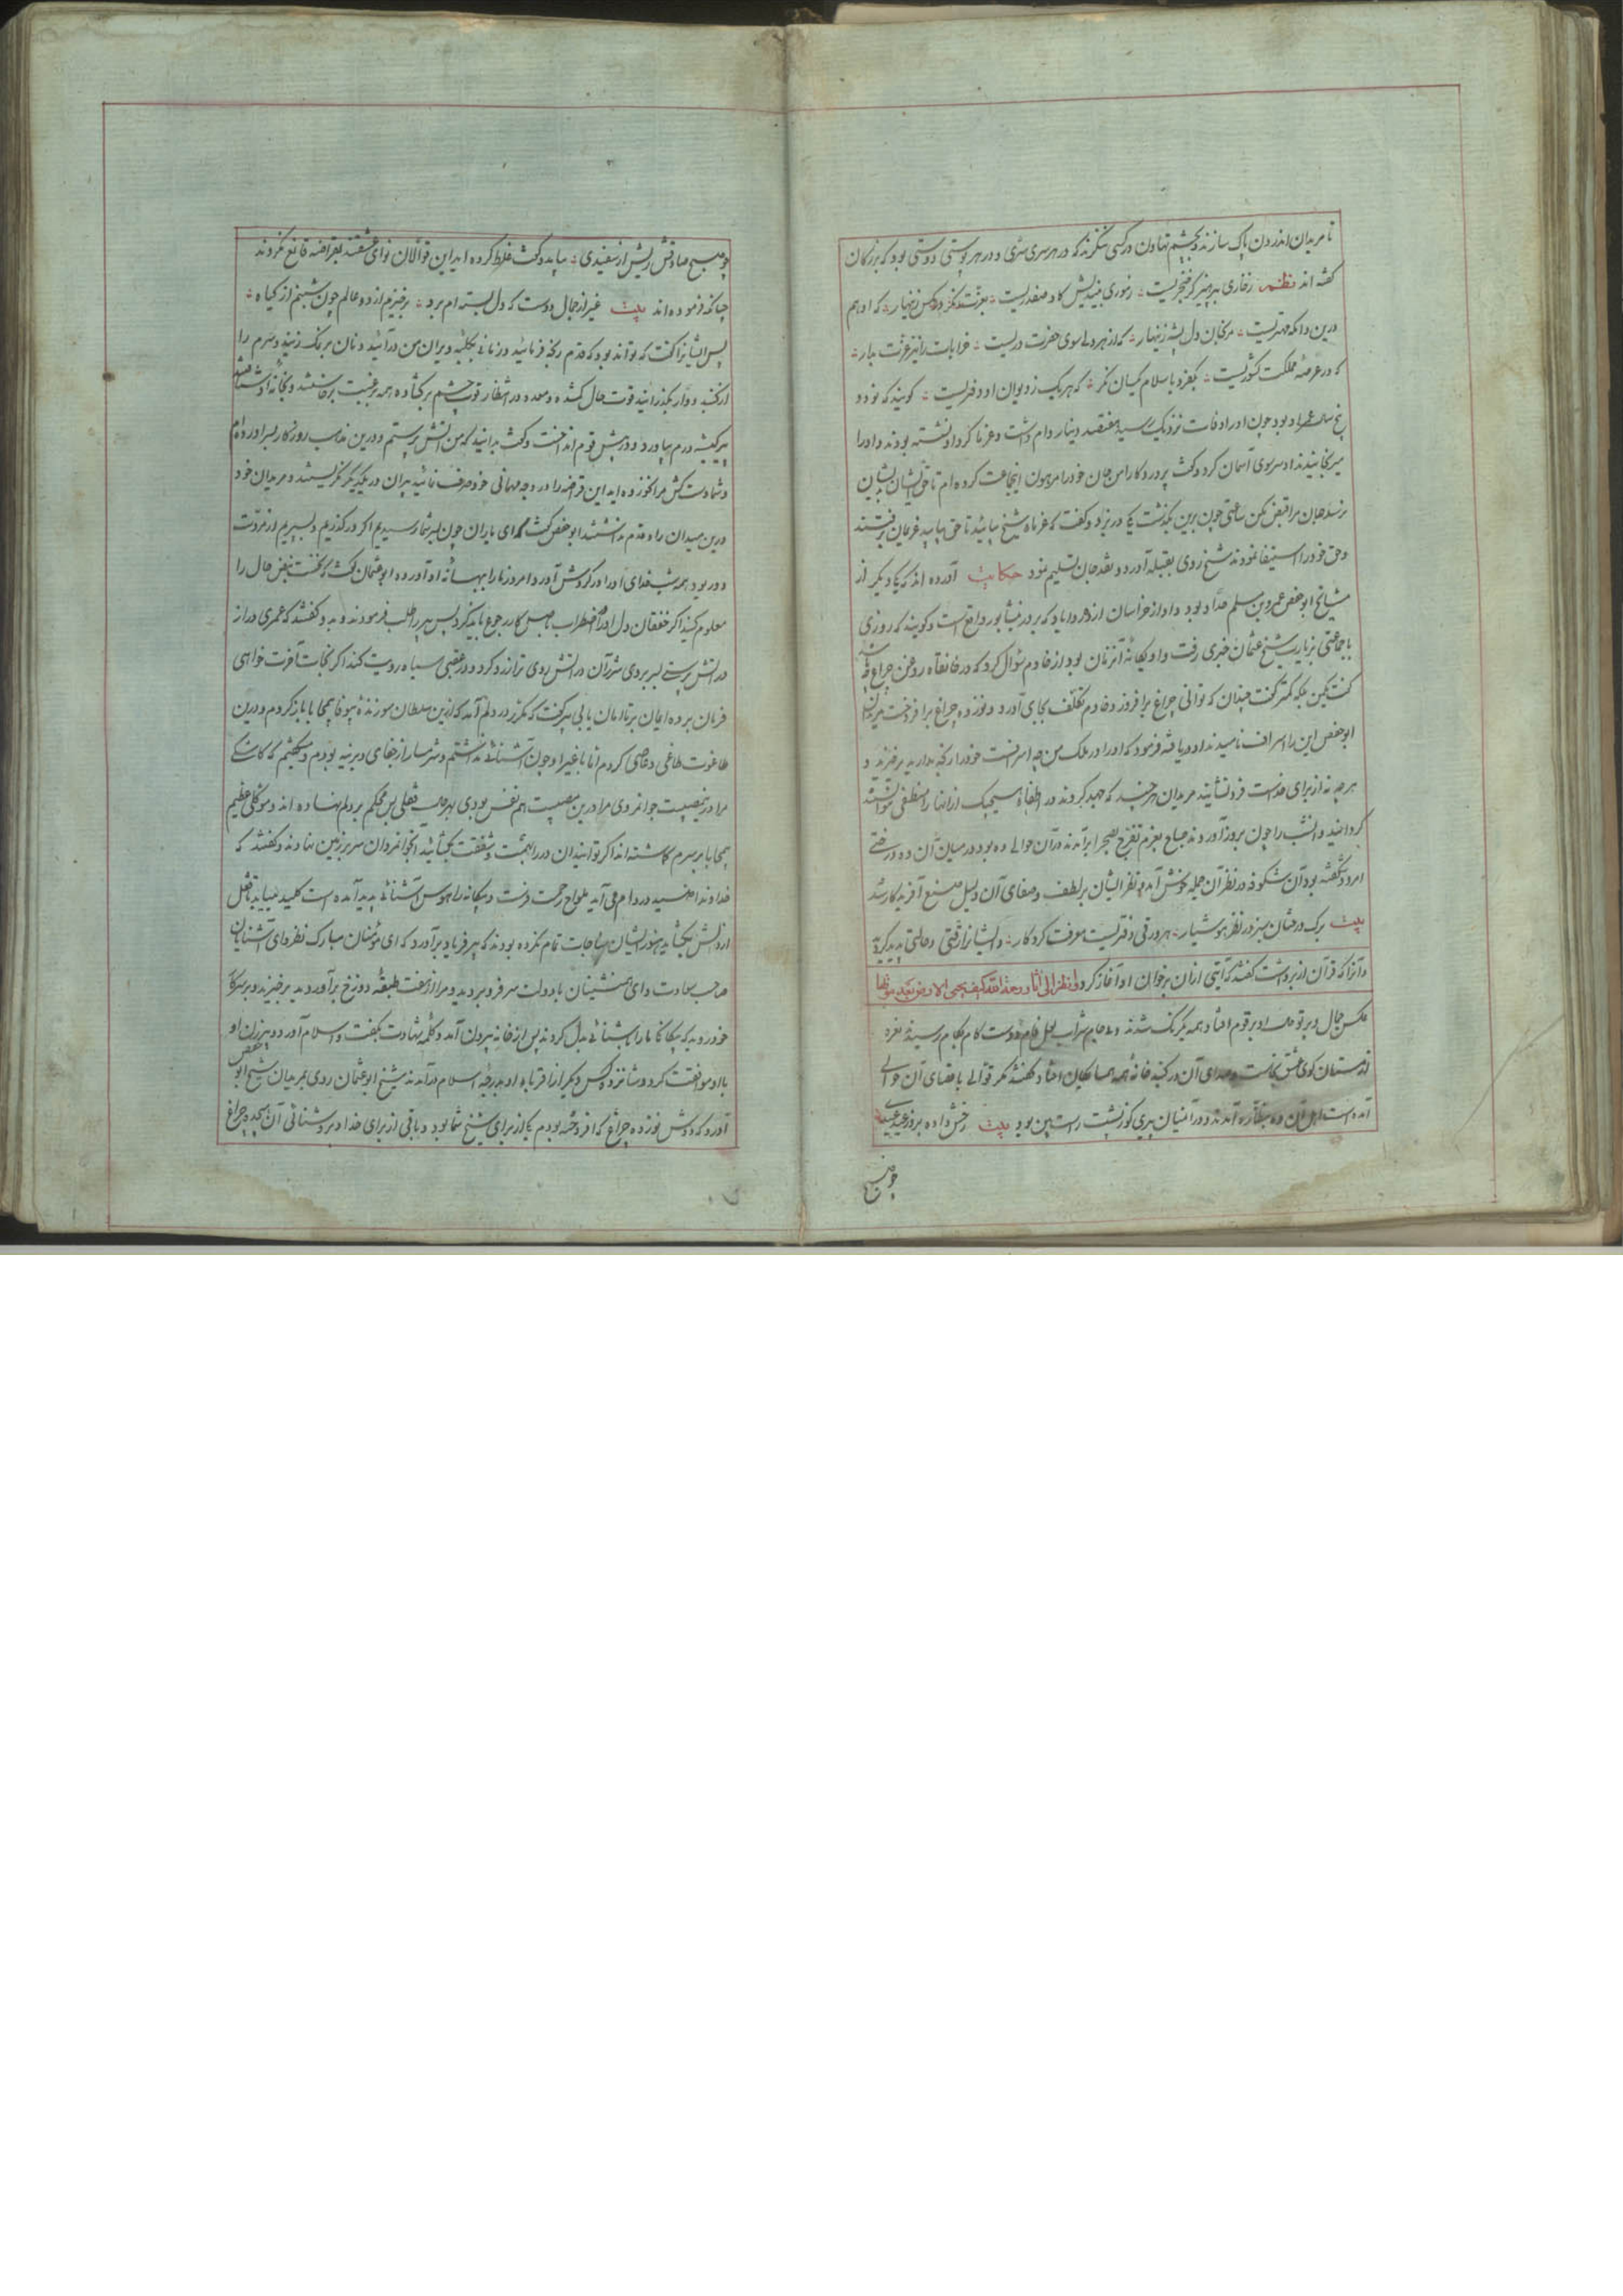 تا مریدان اندرون پاک سازند و بچشم تهاون در کسی ننگرند که در هر سری سری و در هر پوستی دوستی بود که بزرگان
گفته اند نظم زخاری بپرهیز کو خنجریست زموری بیندیش کاو صفدریست بعزت نگر در کس زنهار که او هم
درین دایکه مهتریست مرنجان دل پشه زنهار که از هر دلی سوی حضرت دریست خرابات را نیز عزت بدار
که در عرصه مملکت کشوریست بکفر و باسلام یکسان نگر که هر یک ز دیوان او دفتریست گویند که نود و
پنج سال عمر او بود چون او را وفات نزدیک رسید هفتصد دینار وام داشت و غرما گرد او نشسته بودند و او را
میرنجانیدند او سر سوی آسمان کرد و گفت پروردگارا من جان خود را مرهون اینجماعت کرده ام تا حق ایشان بدیشان
نرسد جان مرا قبض مکن ساعتی چون برین بگذشت یکی در بزد و گفت که غرماء شیخ بیائید تا حق بیابید غریمان برفتند
و حق خود را استیفا نمودند شیخ روی بقبله آورد و نقد جان تسلیم نمود حکایت آورده اند که یکی دیگر از
مشایخ ابو حفص عمرو بن سلم حداد بود و او از خراسان از ده که بر در نیشابور واقع است و گویند که روزی
با جماعتی بزیارت شیخ عثمان حیری رفت و او یگانه آنزمان بود از خادم سؤال کرد که در خانقاه روغن چراغ
گفت لیکن بلکه کمتر گفت چندان که توانی چراغ برافروز و خادم تکلف بجای آورد و نوزده چراغ برافروخت مریدان
ابو حفص این را اسراف نامیدند او دریافته فرمود که او را در ملک من چه اسرافست خود را رنجه بدارید برخیزید و
هر چه نه از برای خداست فرونشانید مریدان هر چند که جهد کردند در اطفاء هیچیک از انها را منطفی نتوانستند
گردانید و انشب را چون بروز آوردند صباح بعزم تفرج بصحرا برآمدند در آن حوالی ده بود و در میان آن ده درختی
امرود شکفته بود آن شکوفه در نظر آن جمله خوش آمد و نظر ایشان بر لطف و صفای آن دلیل صنع آفریدگار شد
بیت برک درختان سبز در نظر هوشیار هر ورقی دفتریست معرفت کردگار و ایشانرا رقتی و حالتی پدید کرد
و آنرا که قرآن از بر داشت گفتند که آیتی از آن برخوان او آغاز کرد فانظر الی آثار رحمة الله کیف یحیی الارض بعد موتها
عکس جمال و پرتو بر قوم افتاد همه یکرنگ شدند و جام شراب لعل فام دوست کام بکام رسید نعره
از مستان کوی عشق بخاست و صدای آن در گنبد خانهٔ همه همسایگان افتاد گفتند مگر قوالی باقصای آن حوالی
آمده است اهل آن ده بنظاره آمدند و در آنمیان پیری کوز پشت راست بین بود بیت رخش داده بروز عید
چو صبح
چو صبح صادقش ریش از سفیدی بیامد و گفت غلط کرده اید این قوالان نوای عشقند بقراضه قانع نگردند
چنانکه فرموده اند بیت غیر از جمال دوست که دل بسته ام برد برخیزم از دو عالم چون شبنم از گیاه
پس ایشانرا گفت که تواند بود که قدم رنجه فرمائید و زمانی بکلبهٔ ویران من درآئید و نان بر نمک زنید و سرم را
از گنبد دوار بگذرانید قوت حال گشته و معده در انتظار قوت چشم برگشاده همه برغبت برخاستند و بخانهٔ او شتافتند
پیر کیسه درم بیاورد و در پیش قوم انداخت و گفت بدانید که من آتش پرستم و درین مذهب روزگار بسر آورده ام
و شما دستکش مرا نخورده اید این قراضه را در وجه مهمانی خود صرف نمائید پیران در یکدیگر نگریستند و مریدان خود
درین میدان راه قدم نداشتند ابو حفص گفت ای یاران چون بسر شما رسیدیم اگر درگذریم و بسپریم از مروت
دور بود همه شب خدای او را در گردش آورد و امروز ما را بمهمانی او آورد و ابو عثمان گفت که نخست نبض حال را
معلوم کنید اگر خفقان دل او را اضطراب باصل کار رجوع باید کرد پس پیر را طلب فرمودند و بدو گفتند که عمری دراز
در آتش پرستی بسر بردی شرر آن در آتش روی ترا زرد کرد و در عقبی سیاه رویت کند اگر نجات آخرت خواهی
فرمان بر ده ایمان بر تا امان یابی پیر گفت که مگر در دلم آمد که ازین سلطان سوزندهٔ بیوفا بیمحابا باز کردم و درین
طاغوت طاغی و عاصی کردم اما با غیر او چون آشنائی نداشتم و شرمسار از جفای دیرینه بودم و میگفتم که کاشکی
مرا درین مصیبت جوانمردی مرا درین مصیبت هم نفس بودی بهر حال قفلی بس محکم بر دلم نهاده اند و موکلی عظیم
بیمحابا بر سرم گماشته اند اگر توانید آن در را بهمت و شفقت بگشائید انجوانمردان سر بر زمین نهادند و گفتند که
خداوندا صید در دام می آید ملواح رحمت فرست و بیگانه را هوس آشنائی پدید آمده است کلید بیابد تا قفل
از دلش بگشاید هنوز ایشان مناجات تمام نکرده بودند که پیر فریاد برآورد که ای مؤمنان مبارک نظر و ای آشنایان
صاحب سعادت و ای همنشینان بادولت سر فرو بردید و مرا از هفت طبقه دوزخ برآوردید برخیزید و بر سر کار
خود روید که بیگانگی ما را بآشنائی بدل کردند پس از خانه بیرون آمد و کلمه شهادت بگفت و اسلام آورد و پیر زن او
با او موافقت کرد و شانزده کس دیگر از اقربای او بدرجهٔ اسلام درآمدند شیخ ابو عثمان روی بمریدان شیخ ابو حفص
آورد که دوش نوزده چراغ که افروخته بودم یکی از برای شیخ شما بود و باقی از برای خدا و بروشنائی آن هجده چراغ